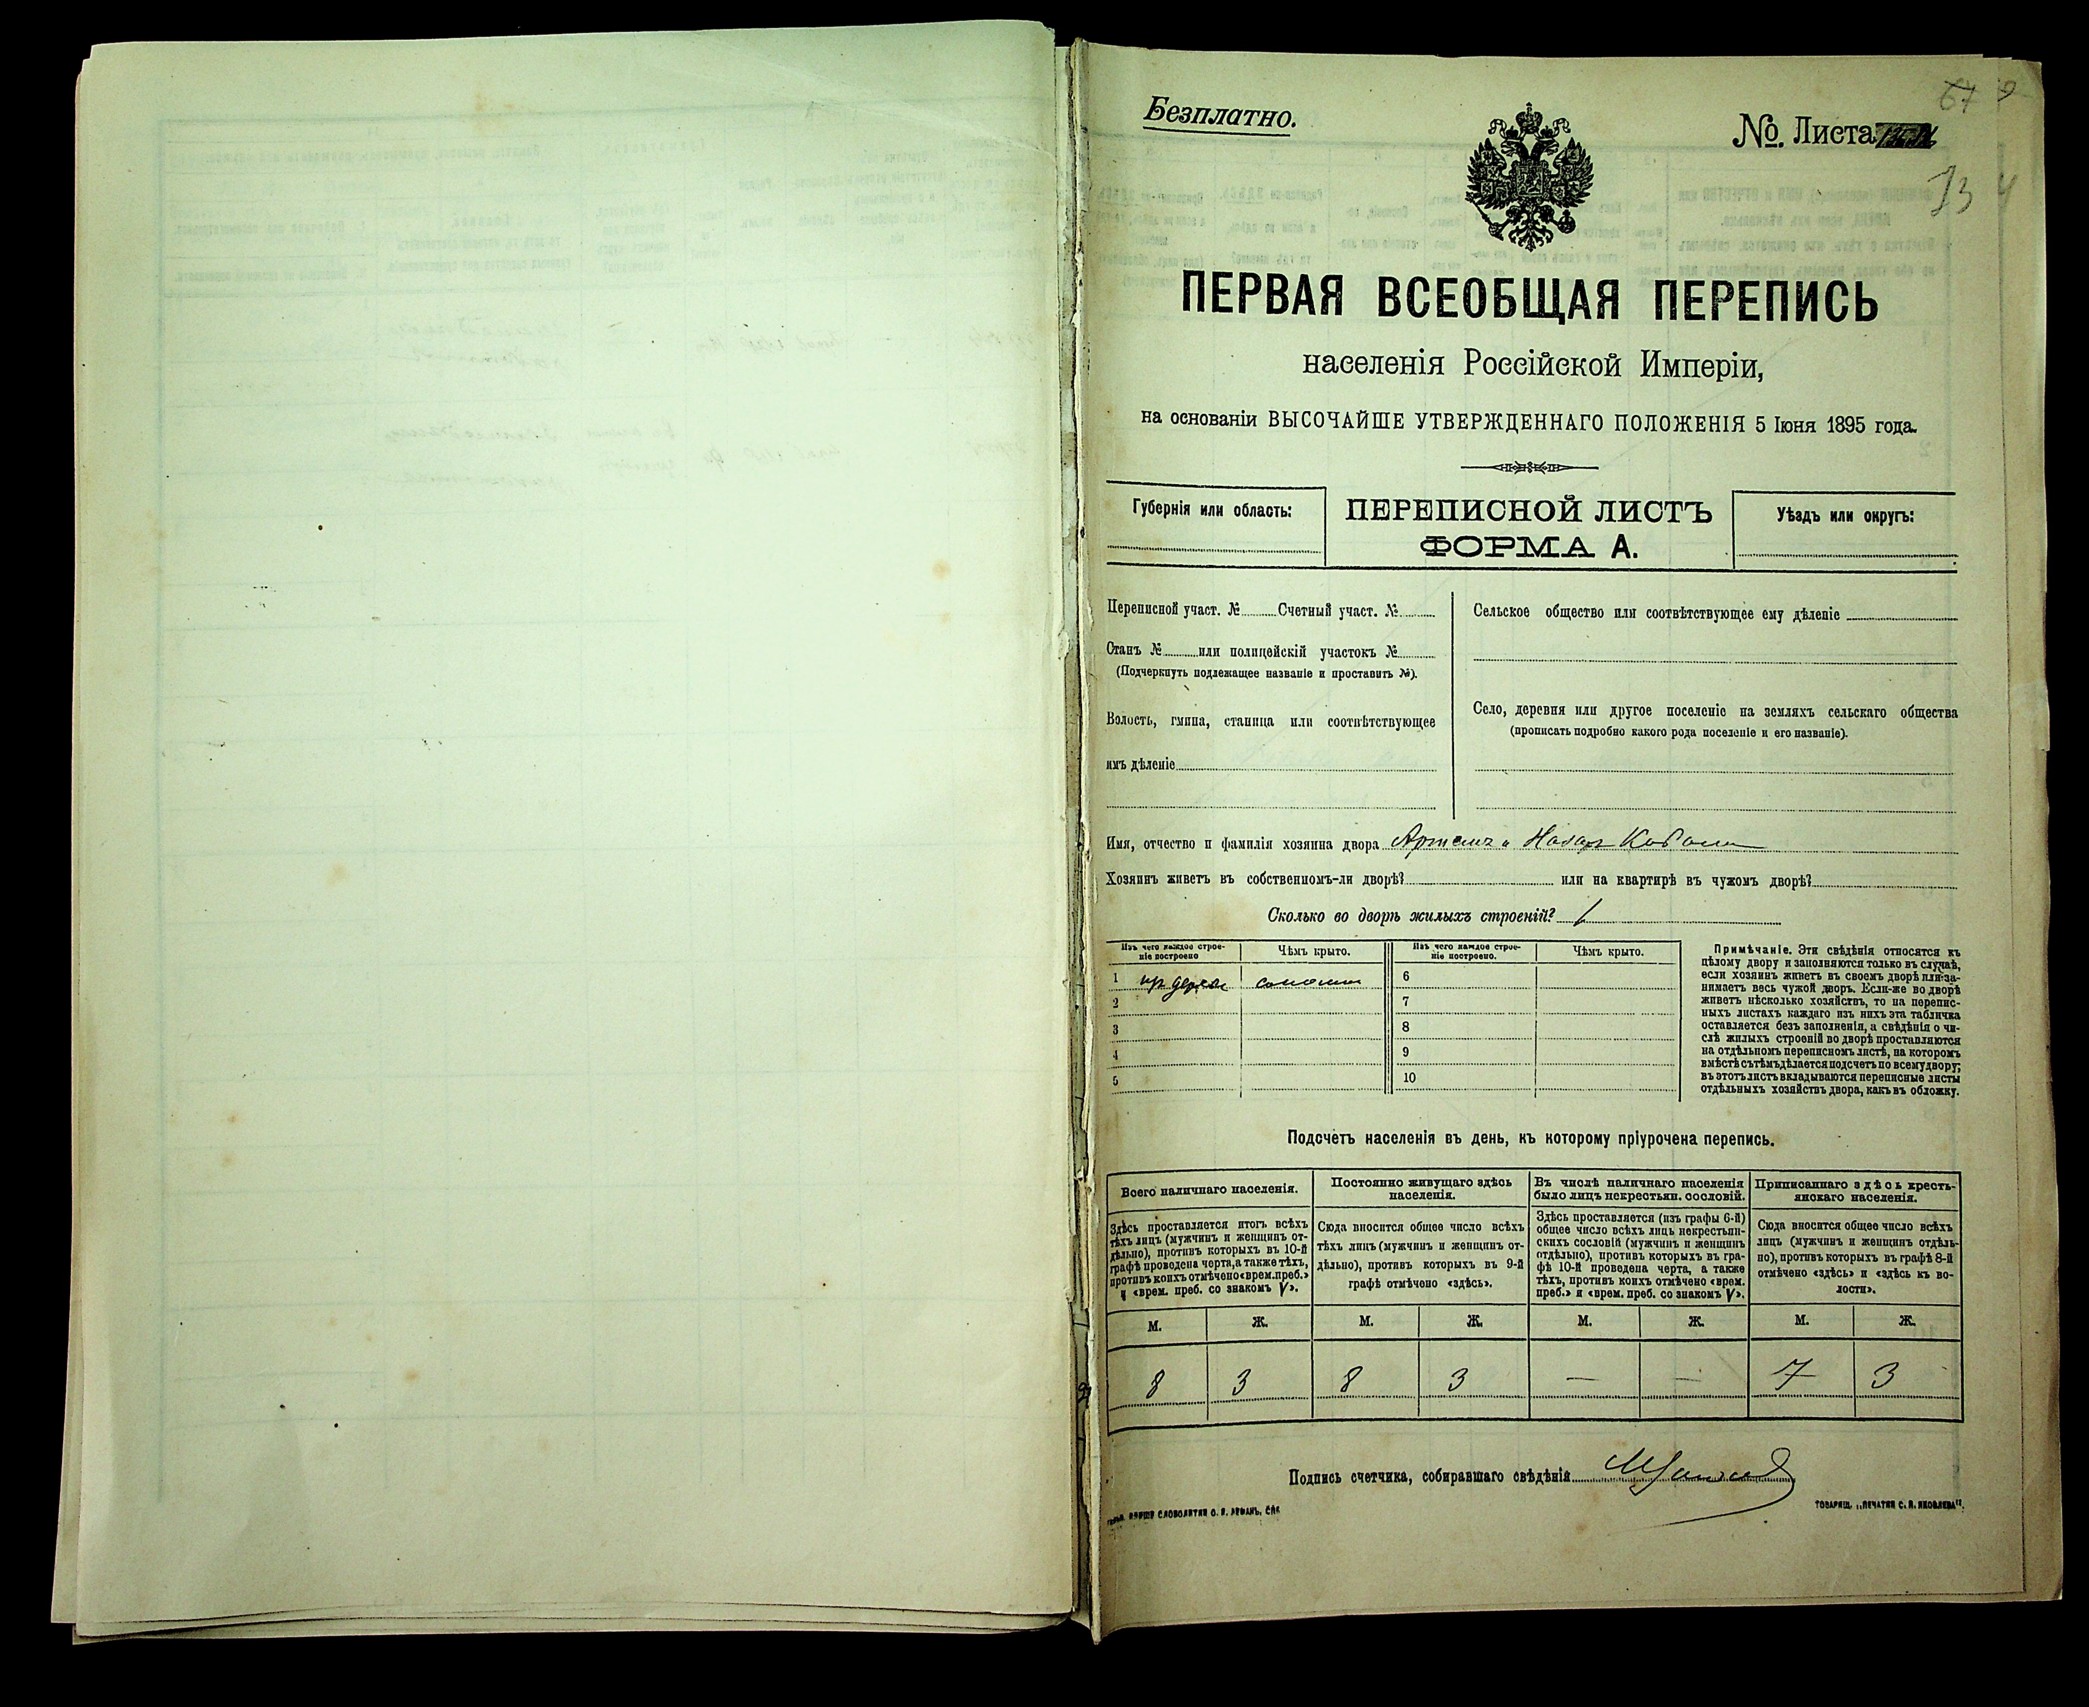 Безплатно.
№. Листа
67
13
ПЕРВАЯ ВСЕОБЩАЯ ПЕРЕПИСЬ
населенія Россійской Имперіи,
на основаніи ВЫСОЧАЙШЕ УТВЕРЖДЕННАГО ПОЛОЖЕНІЯ 5 Іюня 1895 года.
Губернія или область:
ПЕРЕПИСНОЙ ЛИСТЪ
ФОРМА А.
Уѣздъ или округъ:
Переписной участ. № Счетный участ. №
Станъ № или полицейскій участокъ №
(Подчеркнуть подлежащее названіе и проставить №).
Волость, гмина, станица или соотвѣтствующее
имъ дѣленіе
Сельское общество или соотвѣтствующее ему дѣленіе
Село, деревня или другое поселеніе на земляхъ сельскаго общества
(прописать подробно какого рода поселеніе и его названіе).
Имя, отчество и фамилія хозяина двора Артемъ и Назаръ
Хозяинъ живетъ въ собственномъ-ли дворѣ? или на квартирѣ въ чужомъ дворѣ?
Сколько во дворѣ жилыхъ строеній? 1
Изъ чего каждое строе-
ніе построено
Чѣмъ крыто.
Изъ чего каждое строе-
ніе построено.
Чѣмъ крыто.
1 изъ дерева соломой
2
3
4
5
6
7
8
9
10
Примѣчаніе. Эти свѣдѣнія относятся къ
цѣлому двору и заполняются только въ случаѣ,
если хозяинъ живетъ въ своемъ дворѣ или за-
нимаетъ весь чужой дворъ. Если-же во дворѣ
живетъ нѣсколько хозяйствъ, то на перепис-
ныхъ листахъ каждаго изъ нихъ эта табличка
оставляется безъ заполненія, а свѣдѣнія о чи-
слѣ жилыхъ строеній во дворѣ проставляются
на отдѣльномъ переписномъ листѣ, на которомъ
вмѣстѣ съ тѣмъ дѣлается подсчетъ по всему двору;
въ этотъ листъ вкладываются переписные листы
отдѣльныхъ хозяйствъ двора, какъ въ обложку.
Подсчетъ населенія въ день, къ которому пріурочена перепись.
Всего наличнаго населенія.
Здѣсь проставляется итогъ всѣхъ
тѣхъ лицъ (мужчинъ и женщинъ от-
дѣльно), противъ которыхъ въ 10-й
графѣ проведена черта, а также тѣхъ,
противъ коихъ отмѣчено «врем. преб.»
и «врем. преб. со знакомъ V».
Постоянно живущаго здѣсь
населенія.
Сюда вносится общее число всѣхъ
тѣхъ лицъ (мужчинъ и женщинъ от-
дѣльно), противъ которыхъ въ 9-й
графѣ отмѣчено «здѣсь».
Въ числѣ наличнаго населенія
было лицъ некрестьян. сословій.
Здѣсь проставляется (изъ графы 6-й)
общее число всѣхъ лицъ некрестьян-
скихъ сословій (мужчинъ и женщинъ
отдѣльно), противъ которыхъ въ гра-
фѣ 10-й проведена черта, а также
тѣхъ, противъ коихъ отмѣчено «врем.
преб.» и «врем. преб. со знакомъ V».
Приписаннаго здѣсь кресть-
янскаго населенія.
Сюда вносится общее число всѣхъ
лицъ (мужчинъ и женщинъ отдѣль-
но), противъ которыхъ въ графѣ 8-й
отмѣчено «здѣсь» и «здѣсь къ во-
лости».
М. Ж. М. Ж. М. Ж. М. Ж.
8 3 8 3 — — 7 3
Подпись счетчика, собиравшаго свѣдѣнія
СЛОВОЛИТНИ О. И. ЛЕМАНЪ, СПБ
ТОВАРИЩ. „ПЕЧАТНЯ С. П. ЯКОВЛЕВА“.